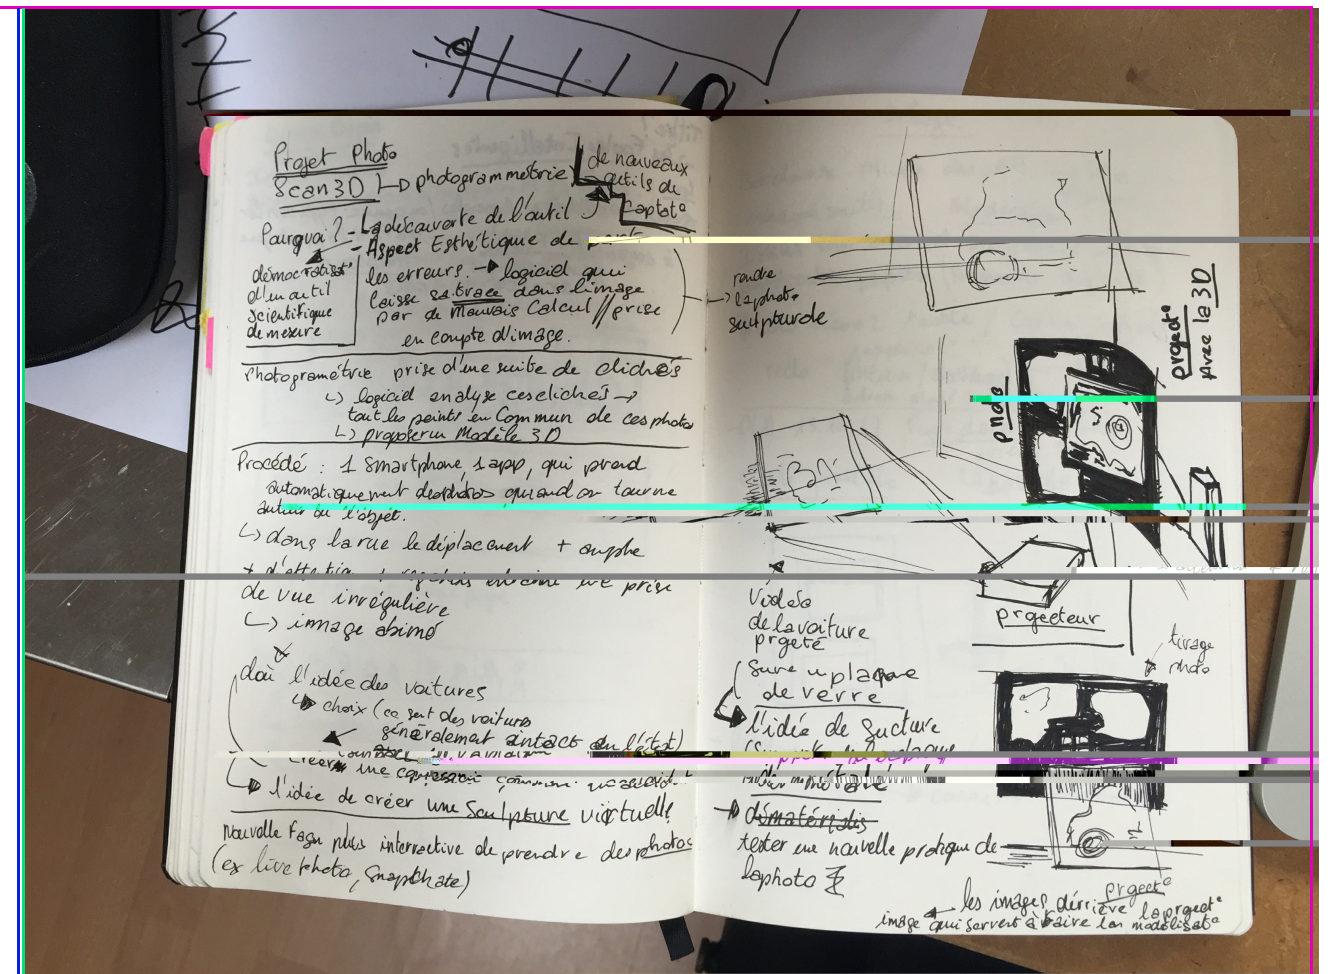 Projet Photo
Scan3D photogrammétrie
de nouveaux
outils de
captat°
Pourquoi ? - La découverte de l'outil
- Aspect Esthétique de
les erreurs. logiciel qui
laisse sa trace dans l'image
par de Mauvais Calcul // prise
en compte d'image.
démocratisat°
d'un outil
scientifique
de mesure
rendre
la photo
sculpturale
Photogramétrie prise d'une suite de clichés
logiciel analyse ces clichés
tout les points en Commun de ces photos
proposer un Modèle 3D
Procédé : 1 smartphone, 1 app, qui prend
automatiquement des photos quand on tourne
autour de l'objet.
dans la rue le déplacement +
prise
de vue irrégulière
image abimé
d'où l'idée des voitures
choix (ce sont des voitures
généralement intact
créer une
l'idée de créer une Sculpture virtuelle
Nouvelle façon plus interractive de prendre des photos
(ex live photo, Snapchate)
photo
projet°
avec la 3D
projecteur
Vidéo
de la voiture
projeté
sure u plaque
de verre
l'idée de Sucture
dématérialis
tester une nouvelle pratique de
la photo
tirage
photo
projet°
les images dérrière la projet°
image qui servent à faire la modélisat°